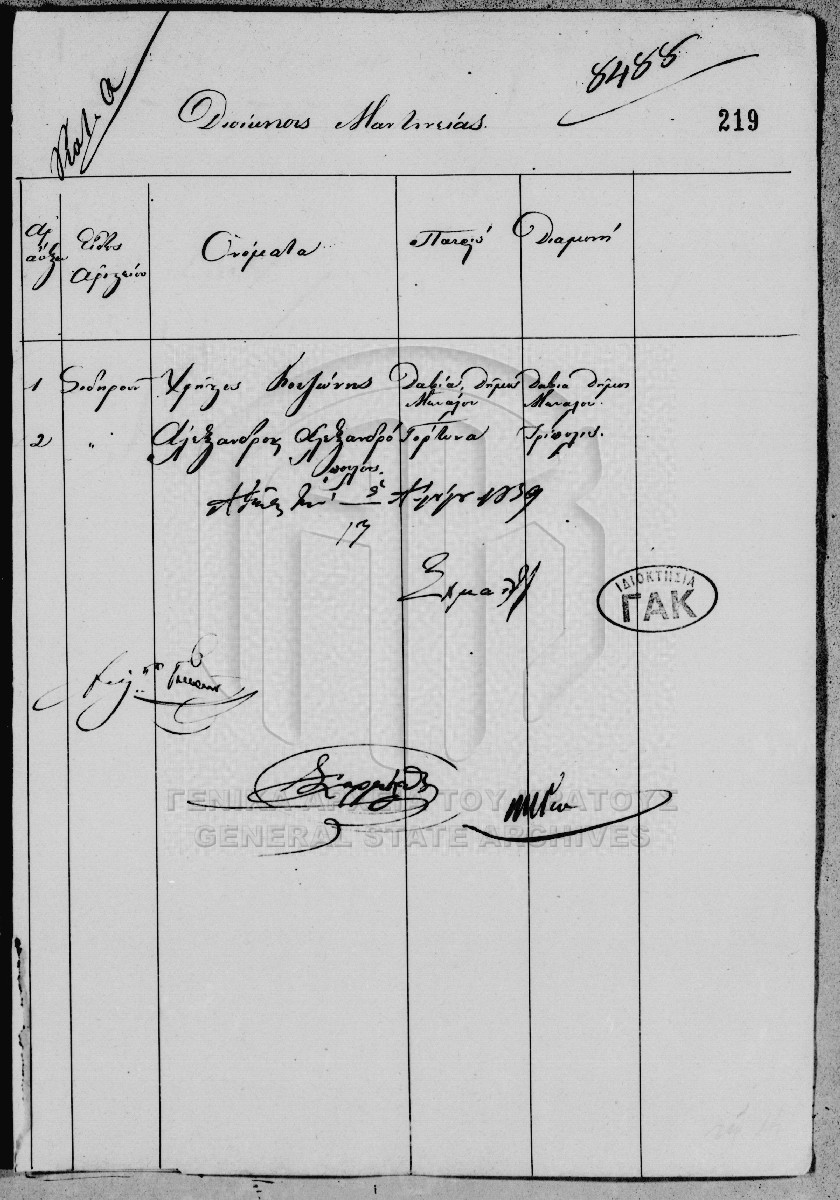 Κατ. Α
8488
Διοίκησις Μαντινείας.
219
Αρ αύξων
Είδος Αριστείου
Ονόματα
Πατρίς
Διαμονή
1 Σιδηρούν Χρήστος Δαβιά, Δήμου Μαινάλου Δαβια Δήμου Μαινάλου.
2 " Αλέξανδρος Αλεξανδρόπουλος Γόρτυνα Τρίπολις.
Αθήναι την 2/17 1839
ΙΔΙΟΚΤΗΣΙΑ
ΓΑΚ
ΓΕΝΙΚΑ ΑΡΧΕΙΑ ΤΟΥ ΚΡΑΤΟΥΣ
GENERAL STATE ARCHIVES